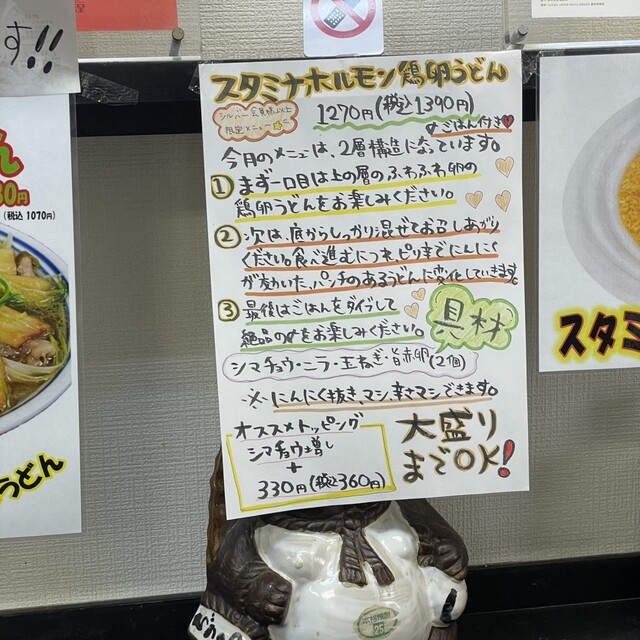 す!!
スタミナホルモン鶏卵うどん
シルバー会員様以上
限定メニュー
1270円(税込1390円)
ごはん付き
今月のメニューは、2層構造になっています。
① まず一口目は上の層のふわふわ卵の
鶏卵うどんをお楽しみください。
② 次は、底からしっかり混ぜてお召しあがり
ください。食べ進むにつれ、ピリ辛でにんにく
が効いた、パンチのあるうどんに変化していきます。
③ 最後はごはんをダイブして
絶品の〆をお楽しみください。
具材
シマチョウ・ニラ・玉ねぎ・旨赤卵(2個)
※にんにく抜き、マシ、辛さマシできます。
オススメトッピング
シマチョウ増し
+
330円(税込360円)
大盛り
までOK!
ん
30円
(税込 1070円)
うどん
スタミ